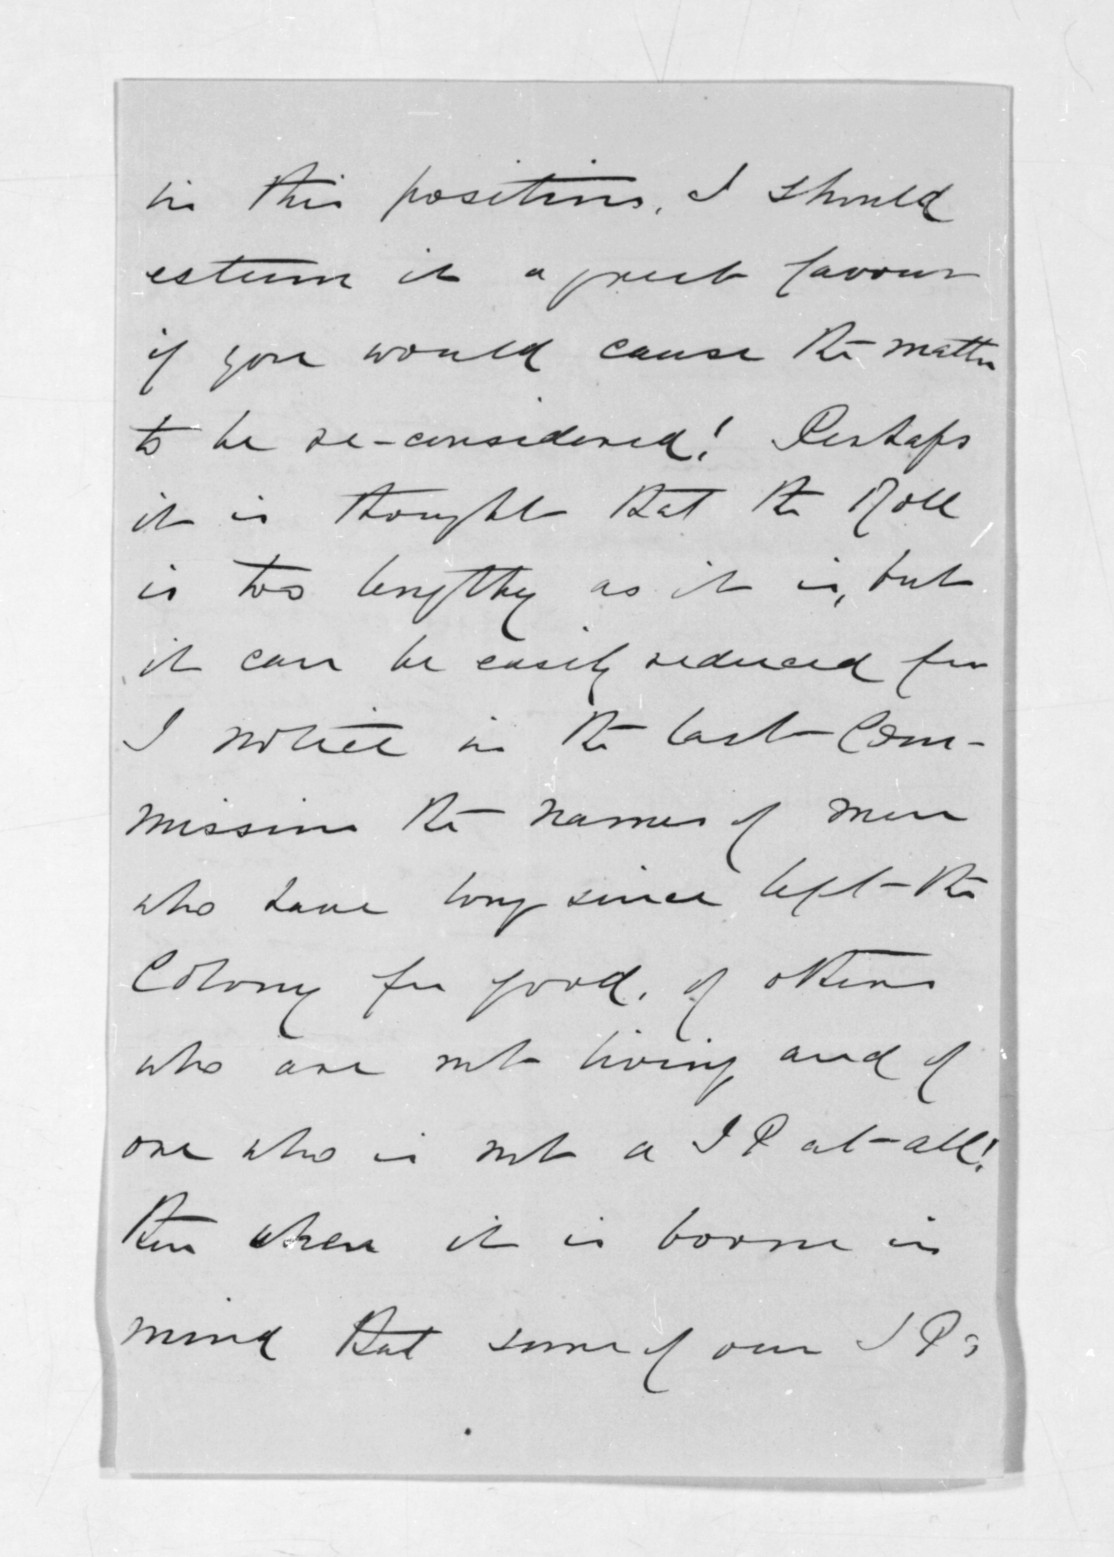 in this position, I should
esteem it a great favour
if you would cause the matter
to be re-considered! Perhaps
it is thought that the Roll
is too lengthy as it is, but
it can be easily reduced for
I notice in the last Com-
mission the names of men
who have long since left the
Colony for good, of others
who are not living and of
one who is not a J P at all!
Then when it is borne in
mind that some of our J Ps